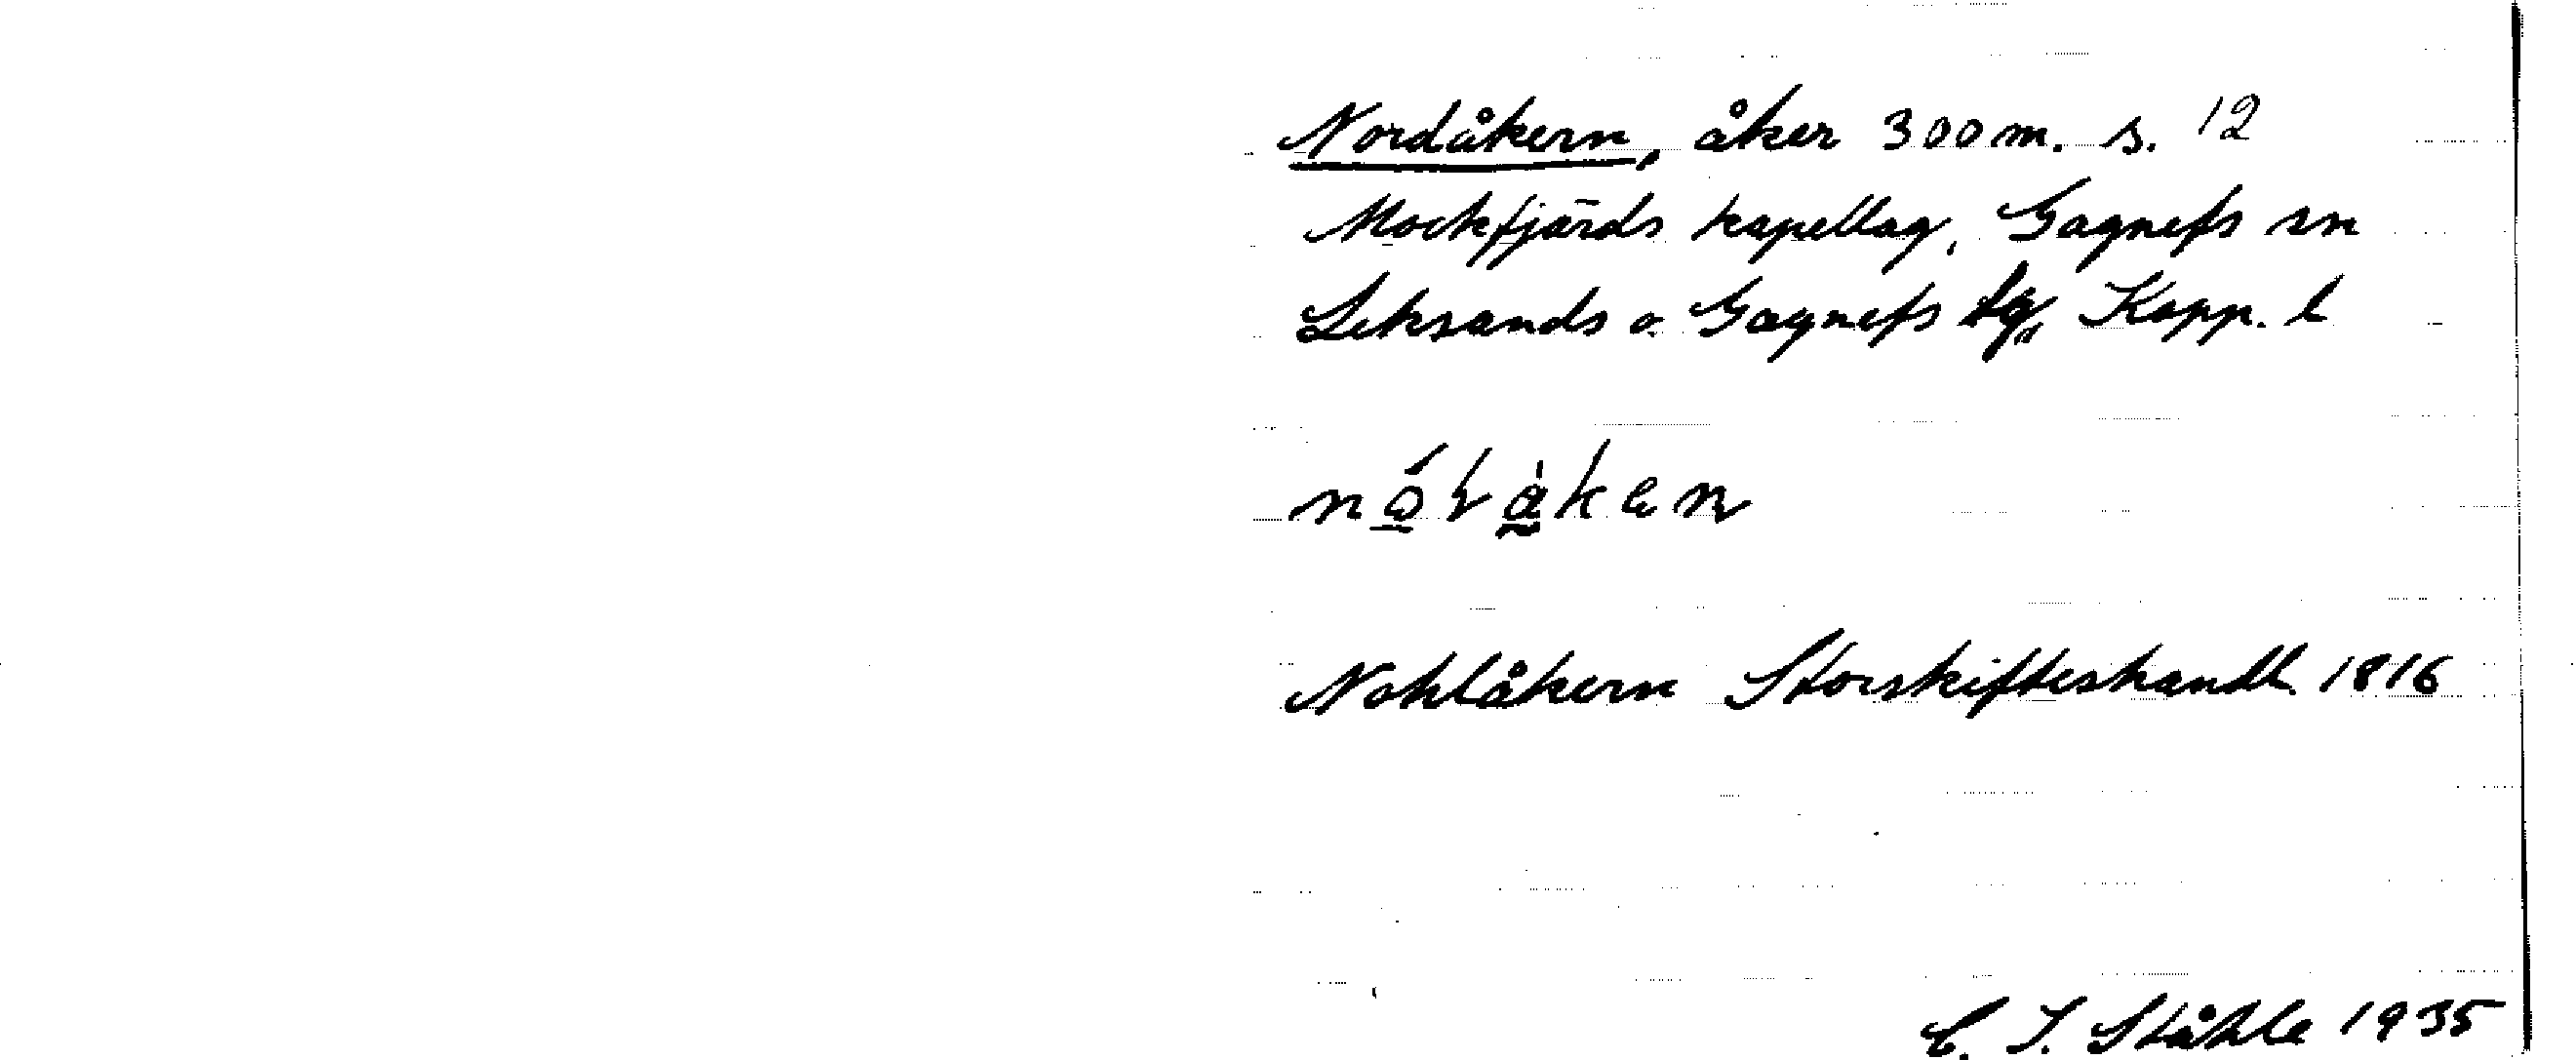 Nordåkern, åker 300 m. s. 12
Mockfjärds kapellag, Gagnefs sn
Leksands o. Gagnefs tg, Kopp. l
Nohlåkern Storskifteshandl. 1816
C. I. Ståhle 1935